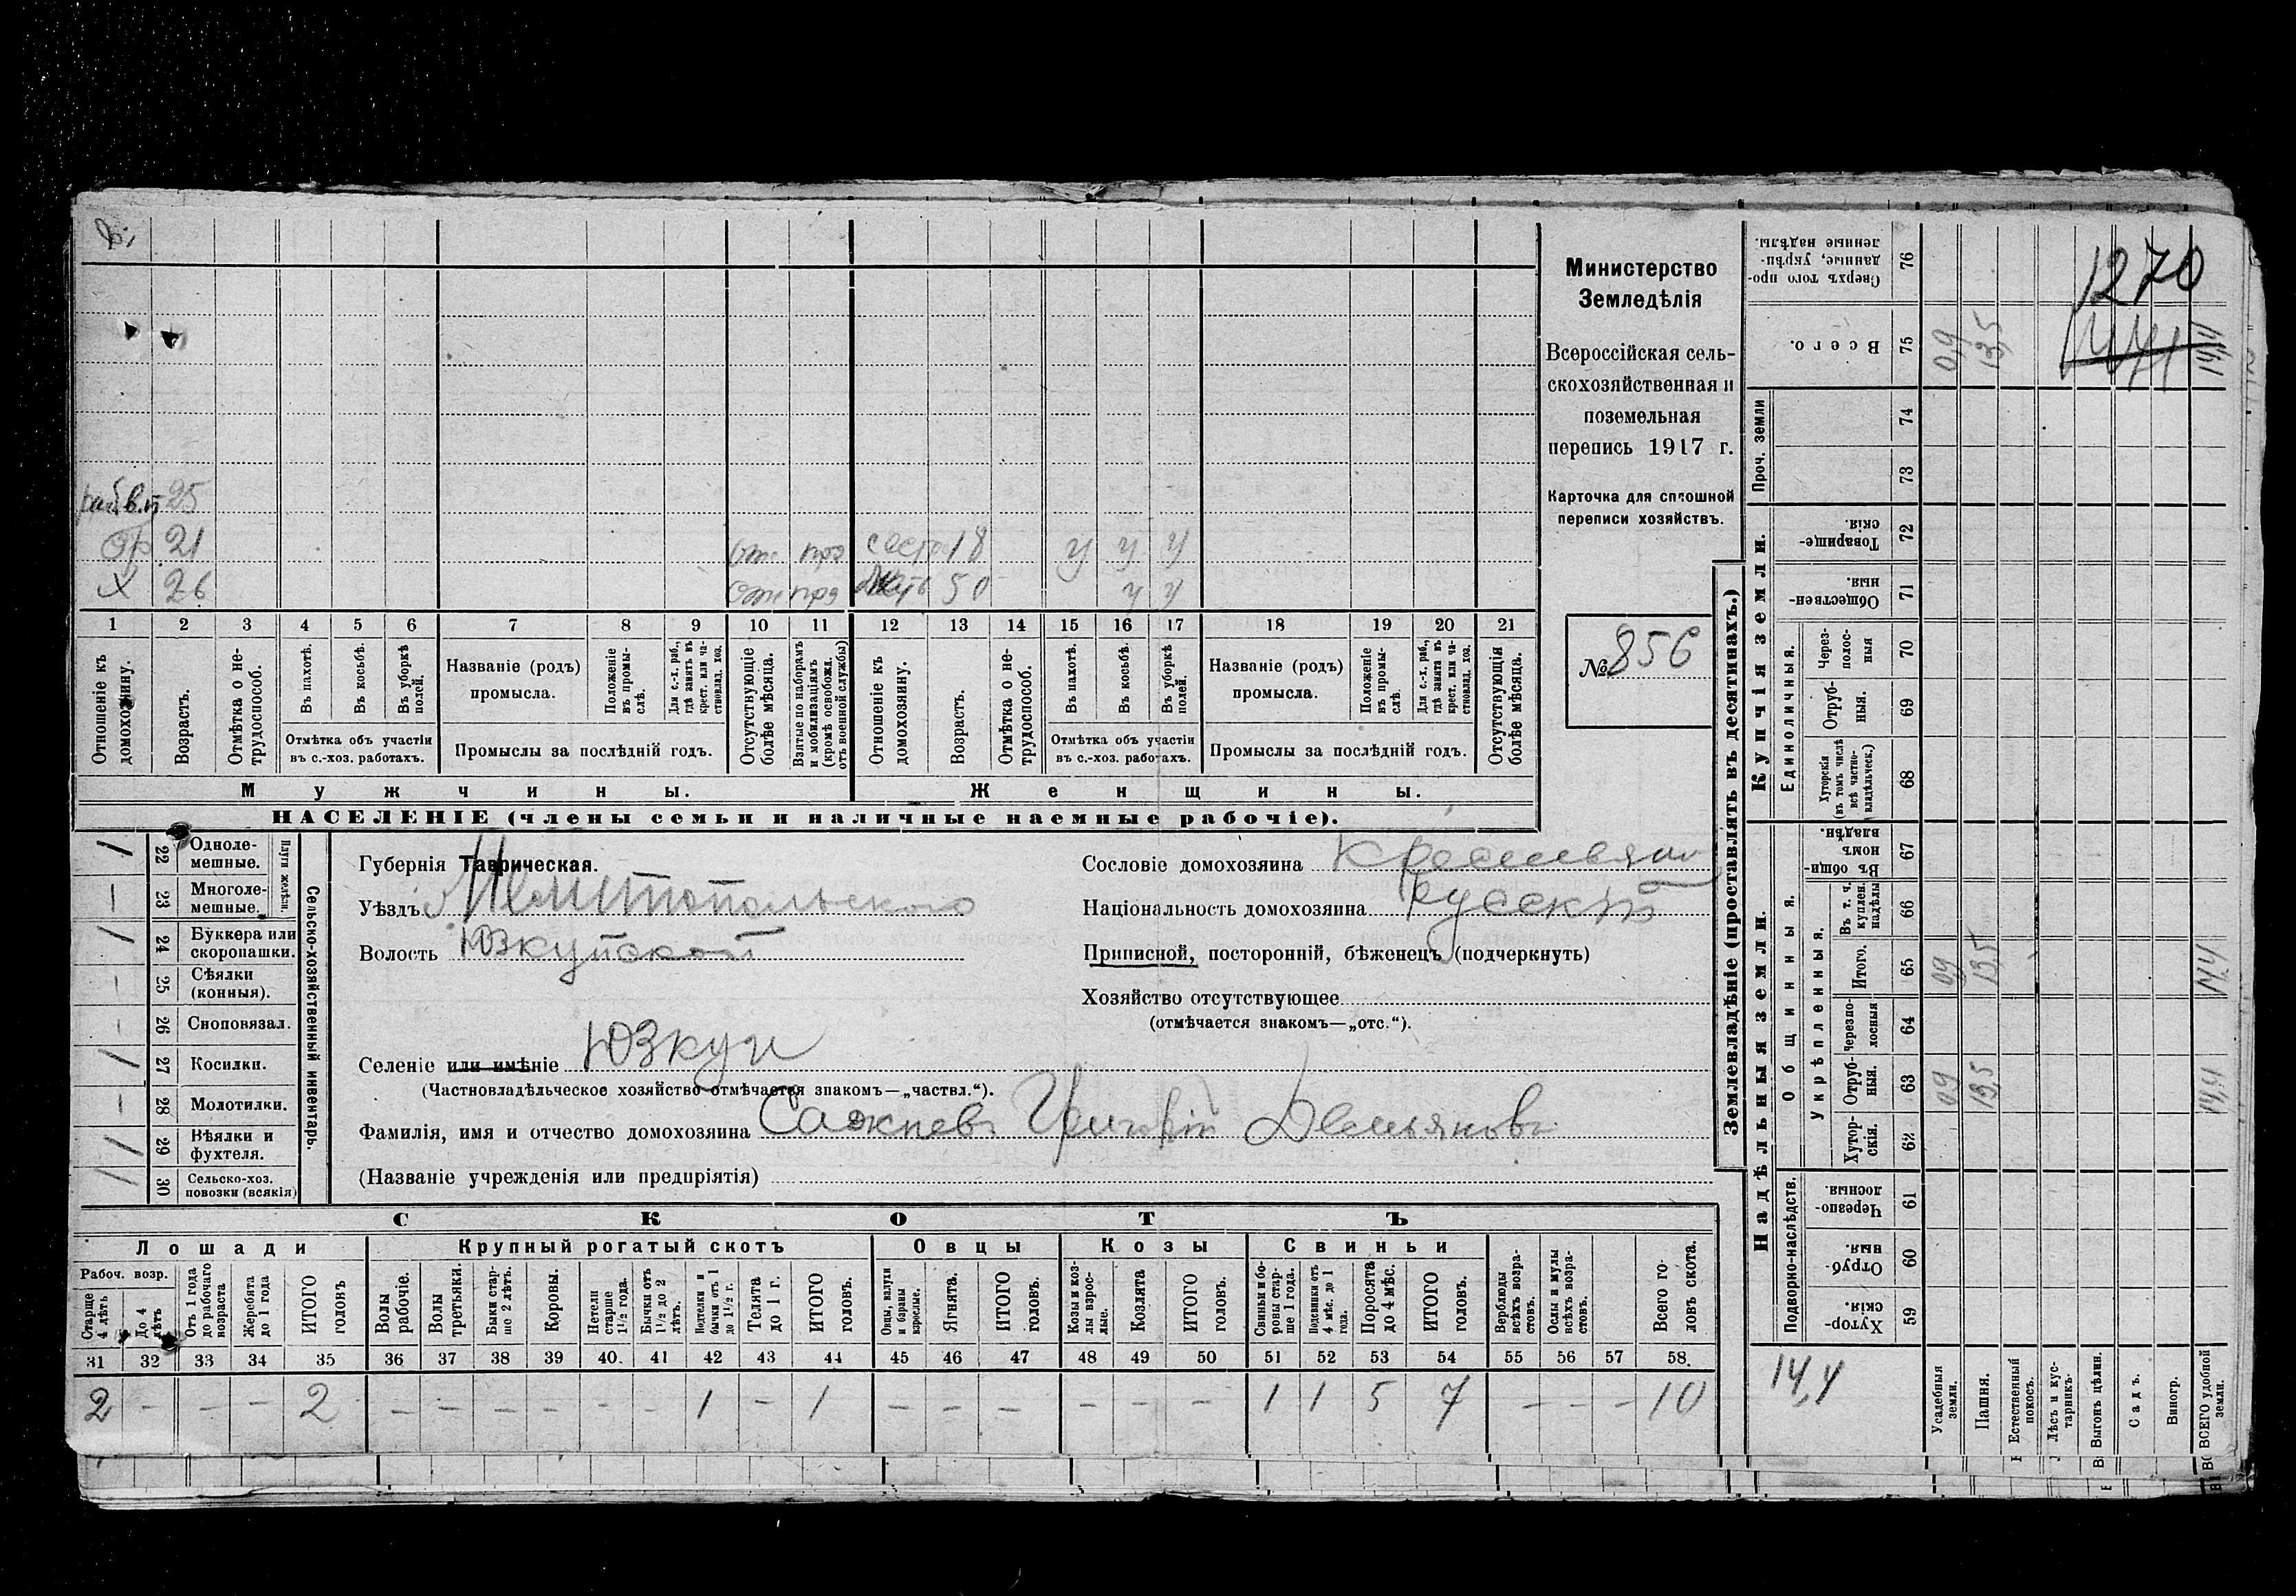 раб.в.п 25
бр 21 отс моб сестра 18 у у у
х 26 мать 50 у у
1 2 3 4 5 6 7 8 9 10 11 12 13 14 15 16 17 18 19 20 21
Отношеніе къ домохозяину.
Возрастъ.
Отмѣтка о не-
трудоспособ.
Въ пахотѣ.
Въ косьбѣ.
Въ уборкѣ
полей.
Отмѣтка объ участіи
въ с.-хоз. работахъ.
Названіе (родъ)
промысла.
Положеніе
въ промы-
слѣ.
Для с.-х. раб.,
гдѣ занятъ въ
крест. или ча-
стновлад. хоз.
Промыслы за послѣдній годъ.
Отсутствующіе
болѣе мѣсяца.
Взятые по наборамъ
и мобилизаціямъ
(кромѣ освобожд.
отъ военной службы)
Отношеніе къ
домохозяину.
Возрастъ.
Отмѣтка о не-
трудоспособ.
Въ пахотѣ.
Въ косьбѣ.
Въ уборкѣ
полей.
Отмѣтка объ участіи
въ с.-хоз. работахъ.
Названіе (родъ)
промысла.
Положеніе
въ промы-
слѣ.
Для с.-х. раб.,
гдѣ занята въ
крест. или ча-
стновлад. хоз.
Промыслы за послѣдній годъ.
Отсутствующія
болѣе мѣсяца.
Мужчины.
Женщины.
НАСЕЛЕНІЕ (члены семьи и наличные наемные рабочіе).
Министерство
Земледѣлія
Всероссійская сель-
скохозяйственная и
поземельная
перепись 1917 г.
Карточка для сплошной
переписи хозяйствъ.
№ 856
Сельско-хозяйственный инвентарь.
Плуги желѣзн.
1 22 Одноле-
мешные.
— 23 Многоле-
мешные.
1 24 Буккера или
скоропашки.
— 25 Сѣялки
(конныя).
— 26 Сноповязал.
1 27 Косилки.
— 28 Молотилки.
1 29 Вѣялки и
фухтеля.
1 30 Сельско-хоз.
повозки (всякія)
Губернія Таврическая.
Уѣздъ Мелитопольского
Волость Юзкуйской
Селеніе или имѣніе Юзкуи
(Частновладѣльческое хозяйство отмѣчается знакомъ—„частвл.“).
Фамилія, имя и отчество домохозяина Сажневъ Григорій Демьяновъ
(Названіе учрежденія или предпріятія)
Сословіе домохозяина крестьянин
Національность домохозяина Русскій
Приписной, посторонній, бѣженецъ (подчеркнуть)
Хозяйство отсутствующее
(отмѣчается знакомъ—„отс.“).
СКОТЪ
Лошади
Крупный рогатый скотъ
Овцы
Козы
Свиньи
Рабоч. возр.
Старше
4 лѣтъ
До 4
лѣтъ
Отъ 1 года
до рабочаго
возраста
Жеребята
до 1 года
ИТОГО
головъ
Волы
рабочіе.
Волы
третьяки.
Быки стар-
ше 2 лѣтъ.
Коровы.
Нетели
старше
1 1/2 года.
Бычки отъ
1 1/2 до 2
лѣтъ.
Подтелки и
бычки отъ 1
до 1 1/2 г.
Телята
до 1 г.
ИТОГО
головъ.
Овцы, валухи
и бараны
взрослые.
Ягнята.
ИТОГО
головъ.
Козы и коз-
лы взрос-
лые.
Козлята
ИТОГО
головъ.
Свиньи и бо-
ровы стар-
ше 1 года.
Подсвинки отъ
4 мѣс. до 1
года.
Поросята
до 4 мѣс.
ИТОГО
головъ.
Верблюды
всѣхъ возра-
стовъ.
Ослы и мулы
всѣхъ возра-
стовъ.
Всего го-
ловъ скота.
31 32 33 34 35 36 37 38 39 40. 41 42 43 44 45 46 47 48 49 50 51 52 53 54 55 56 57 58.
2 — — — 2 — — — — — — 1 — 1 — — — — — — 1 1 5 7 — — — 10
Землевладѣніе (проставлять въ десятинахъ.)
Купчія земли.
Надѣльныя земли.
Проч. земли
Единоличныя.
Общинныя.
Укрѣпленныя.
Подворно-наслѣдств.
Сверхъ того про-
данные, укрѣп-
ленные надѣлы.
76
1270
Всего. 75 0,9 13,5 14,4
74
73
Товарище-
скія. 72
Обществен-
ныя. 71
Через-
полос-
ныя 70
Отруб-
ныя. 69
Хуторскія
(въ томъ числѣ
всѣ частно-
владѣльческ.) 68
Въ общи
номъ
владѣн. 67
Въ т. ч.
куплен.
надѣлы 66
Итого. 65 09 13,5 14,4
Черезпо-
лосныя 64
Отруб-
ныя. 63 09 13,5 14,4
Хутор-
скія. 62
Черезпо-
лосныя. 61
Отруб-
ныя. 60
Хутор-
скія. 59
14,4
Усадебныя
земли.
Пашня.
Естественный
покосъ.
Лѣсъ и кус-
тарникъ.
Выгонъ цѣлин.
Садъ.
Виногр.
ВСЕГО удобной
земли.